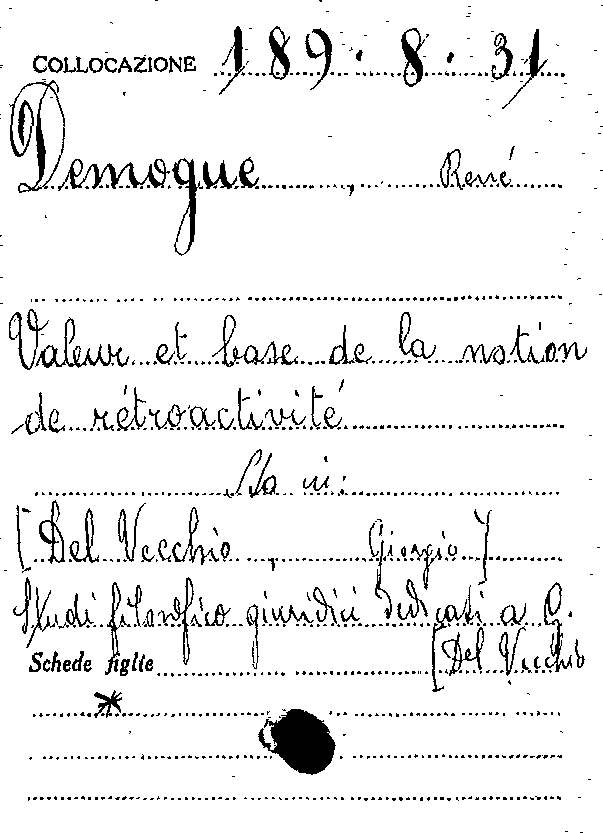 COLLOCAZIONE 189.8.31
Demogue, René
Valeur et base de la notion
de rétroactivité
Sta in:
[Del Vecchio, Giorgio]
Studi filosofico giuridici dedicati a G.
Schede figlie [Del Vecchio
*